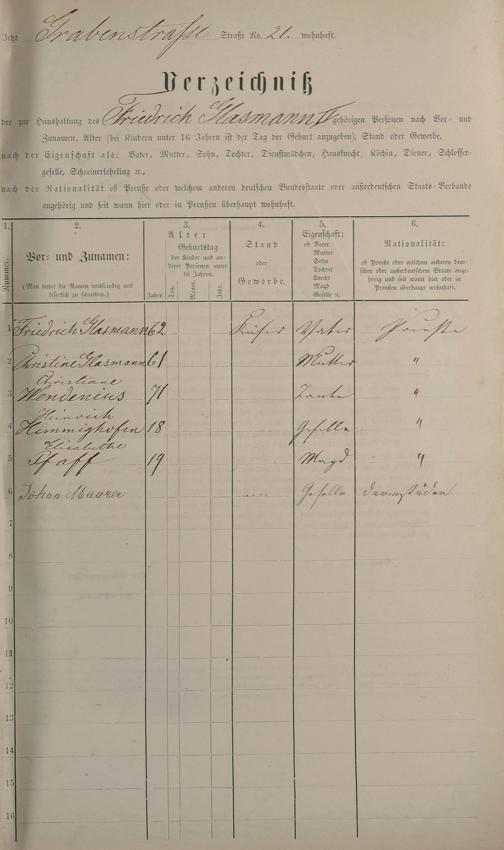 Jetzt Grabenstraße Straße No. 21. wohnhaft.
Verzeichniß
der zur Haushaltung des Friedrich Glasmann gehörigen Personen nach Vor- und
Zunamen, Alter (bei Kindern unter 16 Jahren ist der Tag der Geburt anzugeben), Stand oder Gewerbe,
nach der Eigenschaft als: Vater, Mutter, Sohn, Tochter, Dienstmädchen, Hausknecht, Köchin, Diener, Schlosser-
geselle, Schreinerlehrling ꝛc.,
nach der Nationalität ob Preuße oder welchem anderen deutschen Bundesstaate oder außerdeutschen Staats-Verbande
angehörig und seit wann hier oder in Preußen überhaupt wohnhaft.
1. 2. 3. 4. 5. 6.
Nummer.
Vor- und Zunamen:
(Man bittet die Namen vollständig und
leserlich zu schreiben.)
Alter
Geburtstag
der Kinder und an-
derer Personen unter
16 Jahren.
Jahre. Tag. Monat. Jahr.
Stand
oder
Gewerbe.
Eigenschaft:
ob Vater
Mutter
Sohn
Tochter
Knecht
Magd
Geselle ꝛc.
Nationalität:
ob Preuße oder welchem anderen deut-
schen oder außerdeutschen Staate ange-
hörig und seit wann hier oder in
Preußen überhaupt wohnhaft.
1 Friedrich Glasmann 62 Küfer Vater Preuße
2 Christine Glasmann 61 Mutter "
Christiane
3 Wendenius 71 Tante "
Heinrich
4 Himmighofen 18 Geselle "
Elisabethe
5 Pfaff 19 Magd "
6 Johan Maurer Geselle
7
8
9
10
11
12
13
14
15
16